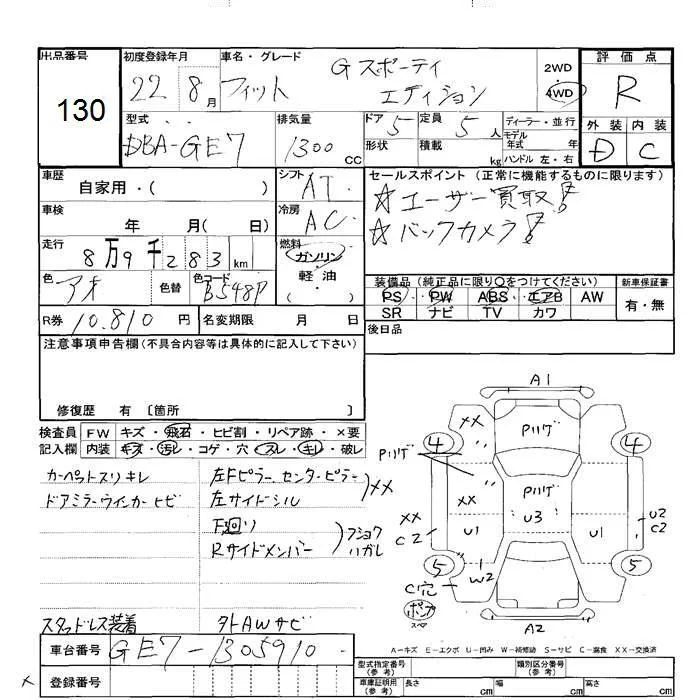 出品番号
130
初度登録年月
22 8月
車名・グレード
フィット Gスポーティ
エディション
2WD
4WD
評価点
R
外装 内装
D C
型式
DBA-GE7
排気量
1300 CC
ドア 5
定員 5 人
形状
積載 kg
ディーラー・並行
モデル年式 年
ハンドル 左・右
車歴
自家用・( )
シフト AT
セールスポイント (正常に機能するものに限ります)
☆ユーザー買取!
☆バックカメラ!
車検
年 月( 日)
冷房 AC
走行
8万9千283 km
燃料
ガソリン
軽・油
( )
色 アオ
色替
色コード B548P
装備品 (純正品に限り○をつけてください)
PS・PW・ABS・エアB AW
SR ナビ TV カワ
新車保証書
有・無
R券 10,810 円
名変期限 月 日
後日品
注意事項申告欄(不具合内容等は具体的に記入して下さい)
修復歴 有 〔箇所 〕
検査員記入欄
FW キズ・飛石・ヒビ割・リペア跡・×要
内装 キズ・汚レ・コゲ・穴・スレ・キレ・破レ
カーペットスリキレ
ドアミラーウインカーヒビ
左Fピラー、センターピラー
左サイドシル
XX
F廻り
Rサイドメンバー
フショク
ハガレ
スタッドレス装着
外AWサビ
A1
XX
Pハゲ
4
4
Pハゲ
Pハゲ
XX
XX
C2
U1
U3
U1
U2
C2
5
5
1
W2
C穴
ポンカ
スペア
A2
車台番号
GE7-1305910
登録番号
A-キズ E-エクボ U-凹み W-補修跡 S-サビ C-腐食 XX-交換済
型式指定番号(参考)
類別区分番号(参考)
車庫証明用(参考)
長さ cm
幅 cm
高さ cm